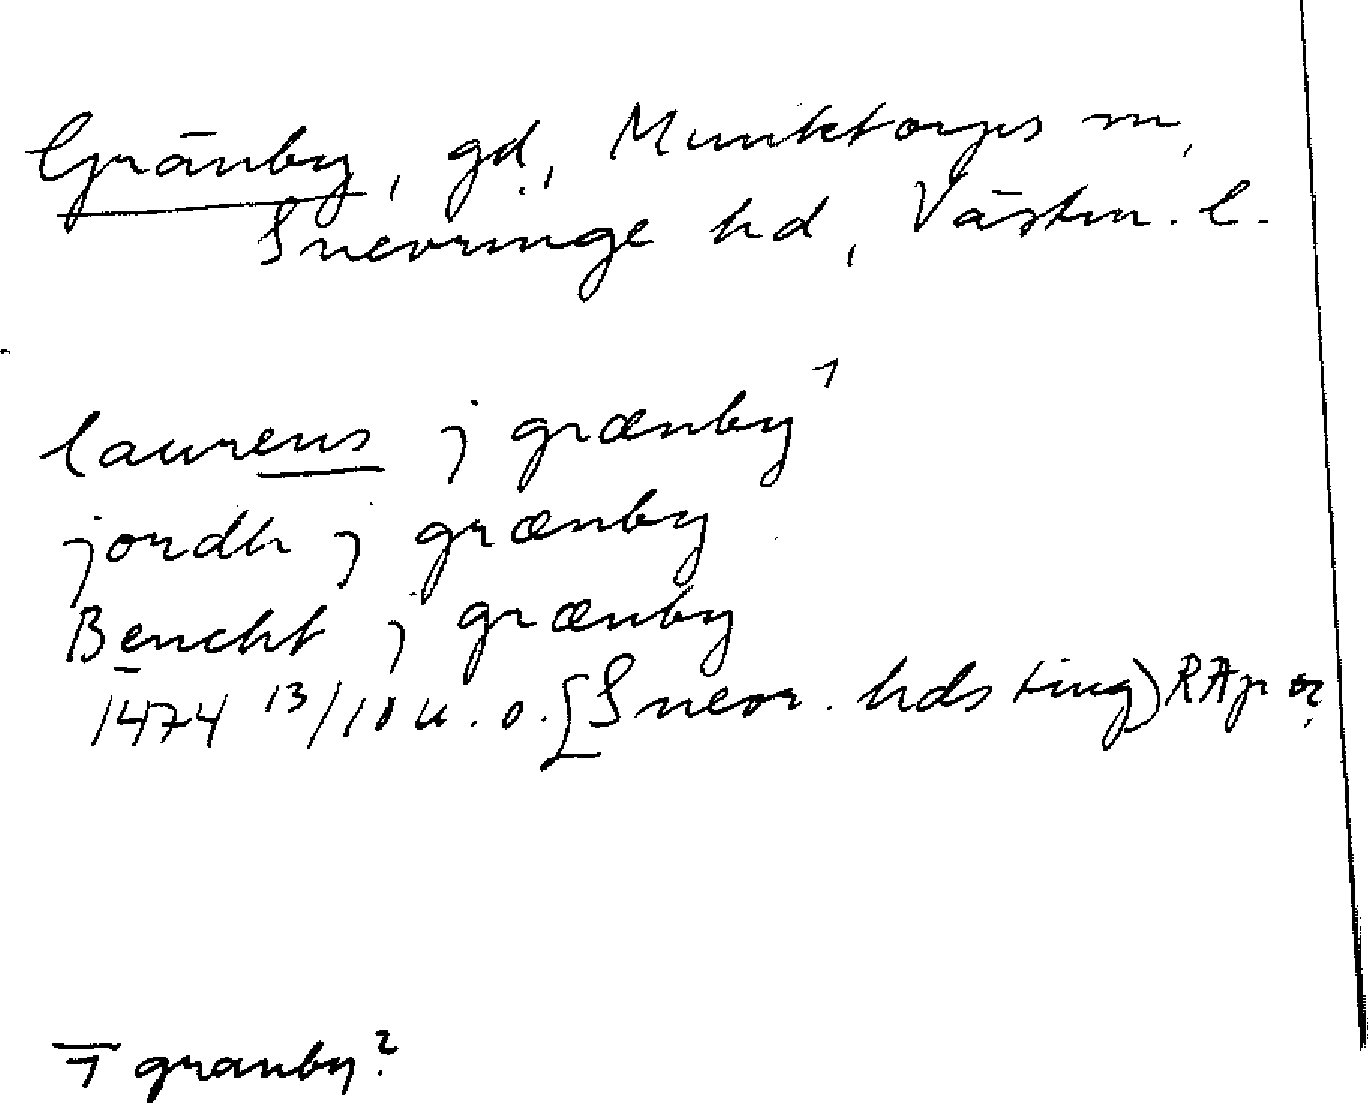 Gränby, gd, Munktorps sn,
Snevringe hd, Västm. l.
laurens j grænby¹
jordh j grænby
Bencht j grænby
1474 13/10 u. o. [Snevr. hds ting) RAp or
1 granby?